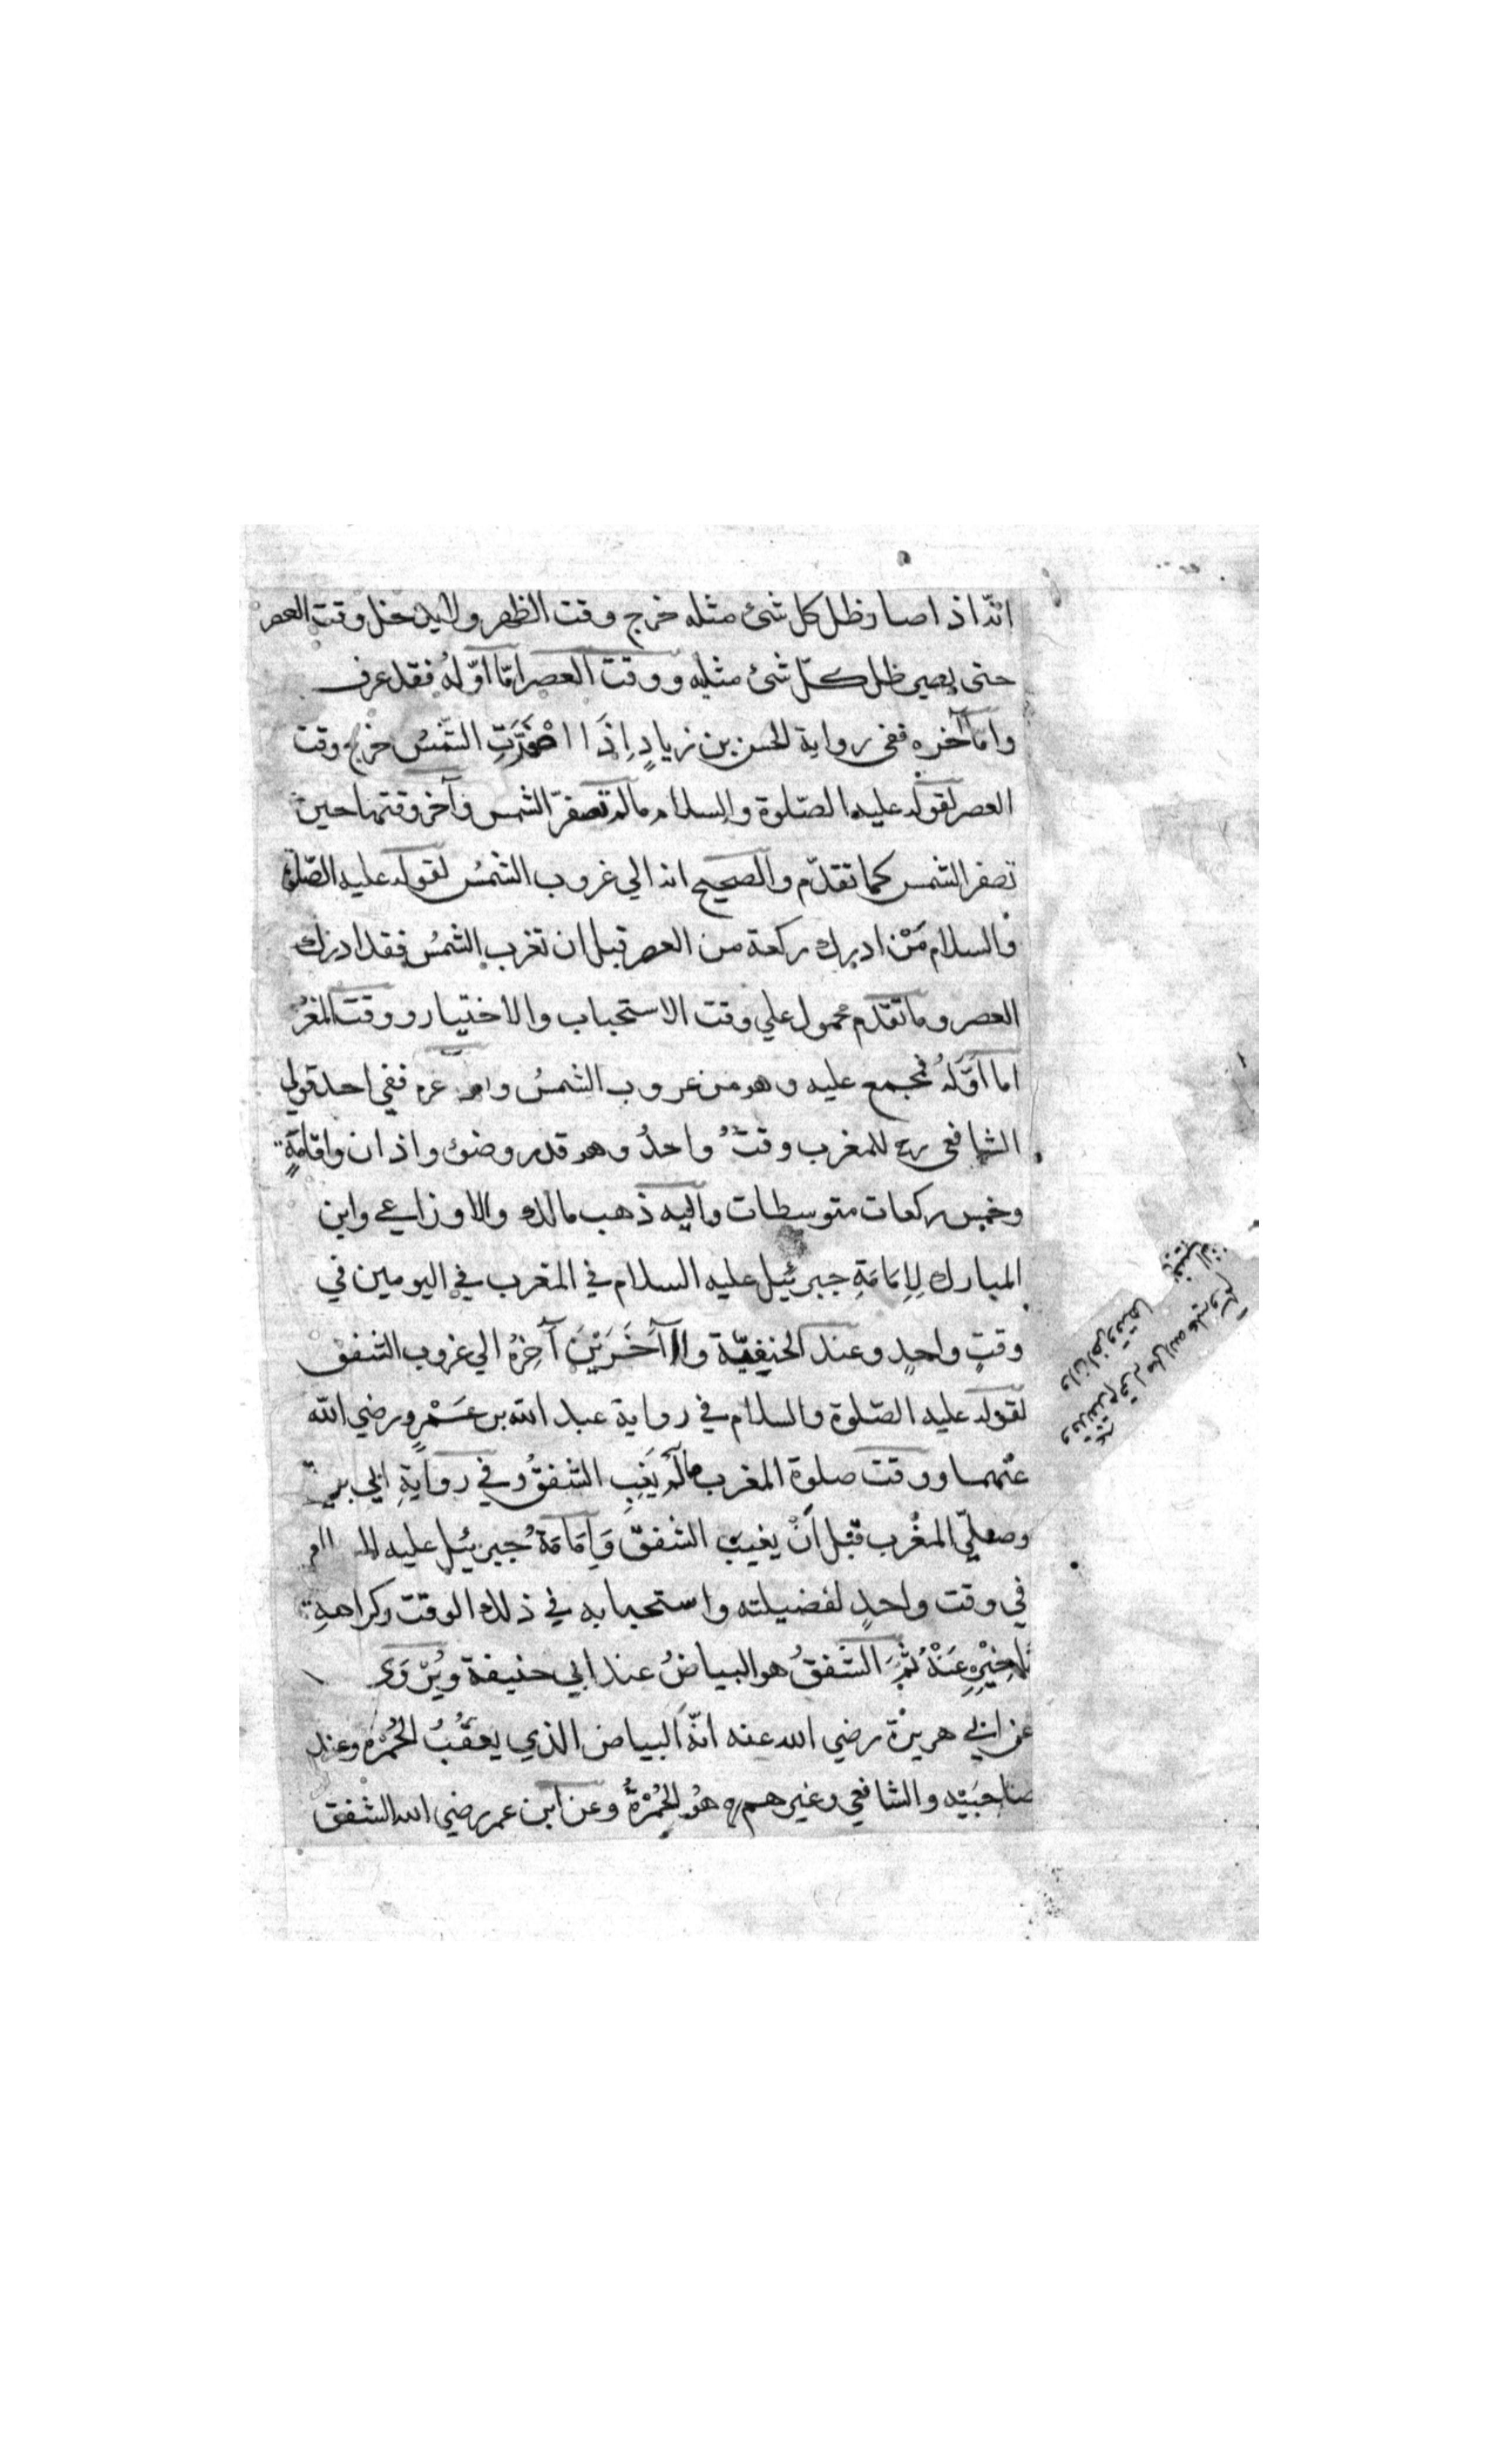 انّه اذا صار ظل كل شئ مثله خرج وقت الظهر ولا يدخل وقت العصر
حتى يصير ظل كلّ شئ مثليه ووقت العصر امّا اوّلهُ فقد عرف
واما آخره ففى رواية الحسن بن زيادٍ اِذَا اصْفَرَّتِ الشّمْسُ خرج وقت
العصر لقوله عليه الصّلوة والسلام مالم تصفرّ الشمس وآخر وقتها حين
تصفر الشمس كما تقدّم والصحيح انه الي غروب الشمسُ لقوله عليه الصّلوة
والسلام مَنْ ادرك ركعة من العصر قبل ان تغرب الشمسُ فقد ادرك
العصر وما تقدّم محمول علي وقت الاستحباب والاختيار ووقت المغرب
اما اَوّلهُ فمجمع عليه وهو من غروب الشمسُ واما ففي احد قولي
الشافعى رح للمغرب وقتٌ واحدٌ وهو قدر وضوء واذان واقامَةٍ
وخمس ركعات متوسطات واليه ذهب مالك والاوزاعي وابن
المبارك لِاِمَامَةِ جبرئيل عليه السلام في المغرب في اليومين في
وقتٍ واحدٍ وعند الحنيفيّة والآخَرَيْنِ آخِرُهُ الي غروب الشفق
لقوله عليه الصّلوة والسلام في رواية عبد الله بن عَمْرٍو رضي الله
عنهما ووقت صلوة المغرب مالم يَغِبِ الشفقُ وفي روايةِ ابي
وصلّي المغرب قبل اَنْ يغيبَ الشفقّ وَاِمَامَةُ جبرئيل عليه السلام
في وقت واحدٍ لفضيلته واستحبابه في ذلك الوقت وكراهةِ
تاخِيْرِهِ عَنْهُ ثُمَّ الشفقُ هو البياضُ عند ابي حنيفة ويُرْوَي
عن ابي هريرة رضي الله عنه انّهُ البياض الذي يعقُبُ الحُمْرَة وعند
صاحبَيْه والشافعي وغيرهم هُو الحُمْرَةُ وعن ابن عمر رضي الله الشفق
وقد تقدم قوله صلى الله عليه وسلم
وان اخر وقتها